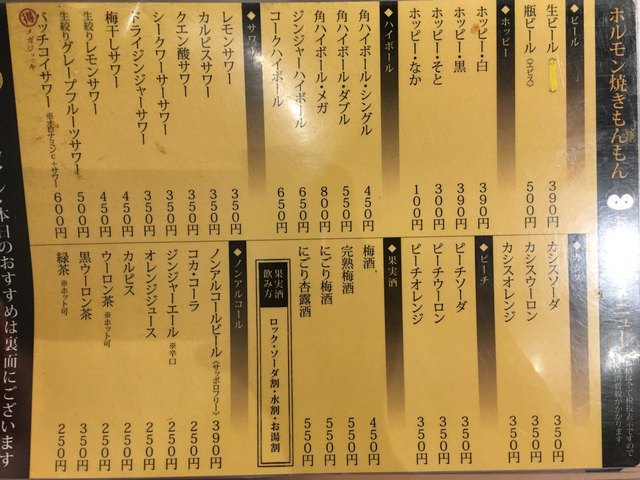 ホルモン焼きもんもん
ニュー
◆ビール
生ビール 390円
瓶ビール(エビス) 500円
◆ホッピー
ホッピー・白 390円
ホッピー・黒 390円
ホッピー・そと 300円
ホッピー・なか 100円
◆ハイボール
角ハイボール・シングル 450円
角ハイボール・ダブル 550円
角ハイボール・メガ 800円
ジンジャーハイボール 650円
コークハイボール 650円
◆サワー
レモンサワー 350円
カルピスサワー 350円
クエン酸サワー 350円
シークワーサーサワー 350円
ドライジンジャーサワー 350円
梅干しサワー 450円
生絞りレモンサワー 450円
生絞りグレープフルーツサワー 500円
得 メガジョッキ
バッチコイサワー ※オロナミンC+サワー 600円
◆カシス
カシスソーダ 350円
カシスウーロン 350円
カシスオレンジ 350円
◆ピーチ
ピーチソーダ 350円
ピーチウーロン 350円
ピーチオレンジ 350円
◆果実酒
梅酒 450円
完熟梅酒 550円
にごり梅酒 550円
にごり杏露酒 550円
果実酒飲み方
ロック・ソーダ割・水割・お湯割
◆ノンアルコール
ノンアルコールビール(サッポロフリー) 390円
コカ・コーラ 250円
ジンジャーエール ※辛口 250円
オレンジジュース 250円
カルピス 250円
ウーロン茶 ※ホット可 250円
黒ウーロン茶 350円
緑茶 ※ホット可 250円
本日のおすすめは裏面にございます